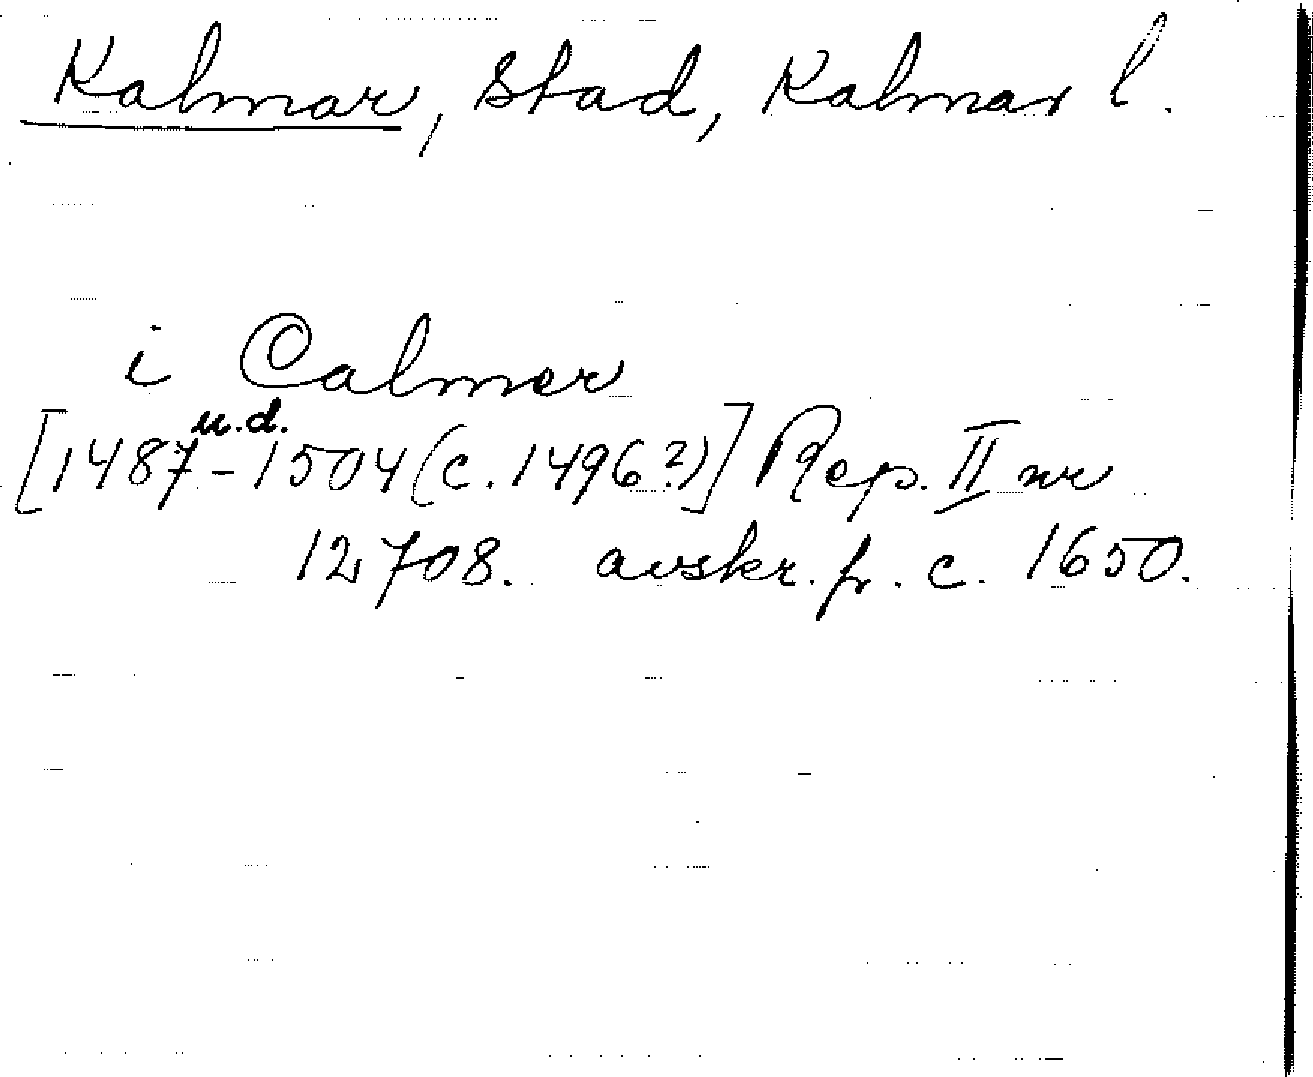 Kalmar, Stad, Kalmar l.
i Calmer
u.d.
[1487-1504(c. 1496?)] Rep. II nr
12708. avskr. fr. c. 1650.